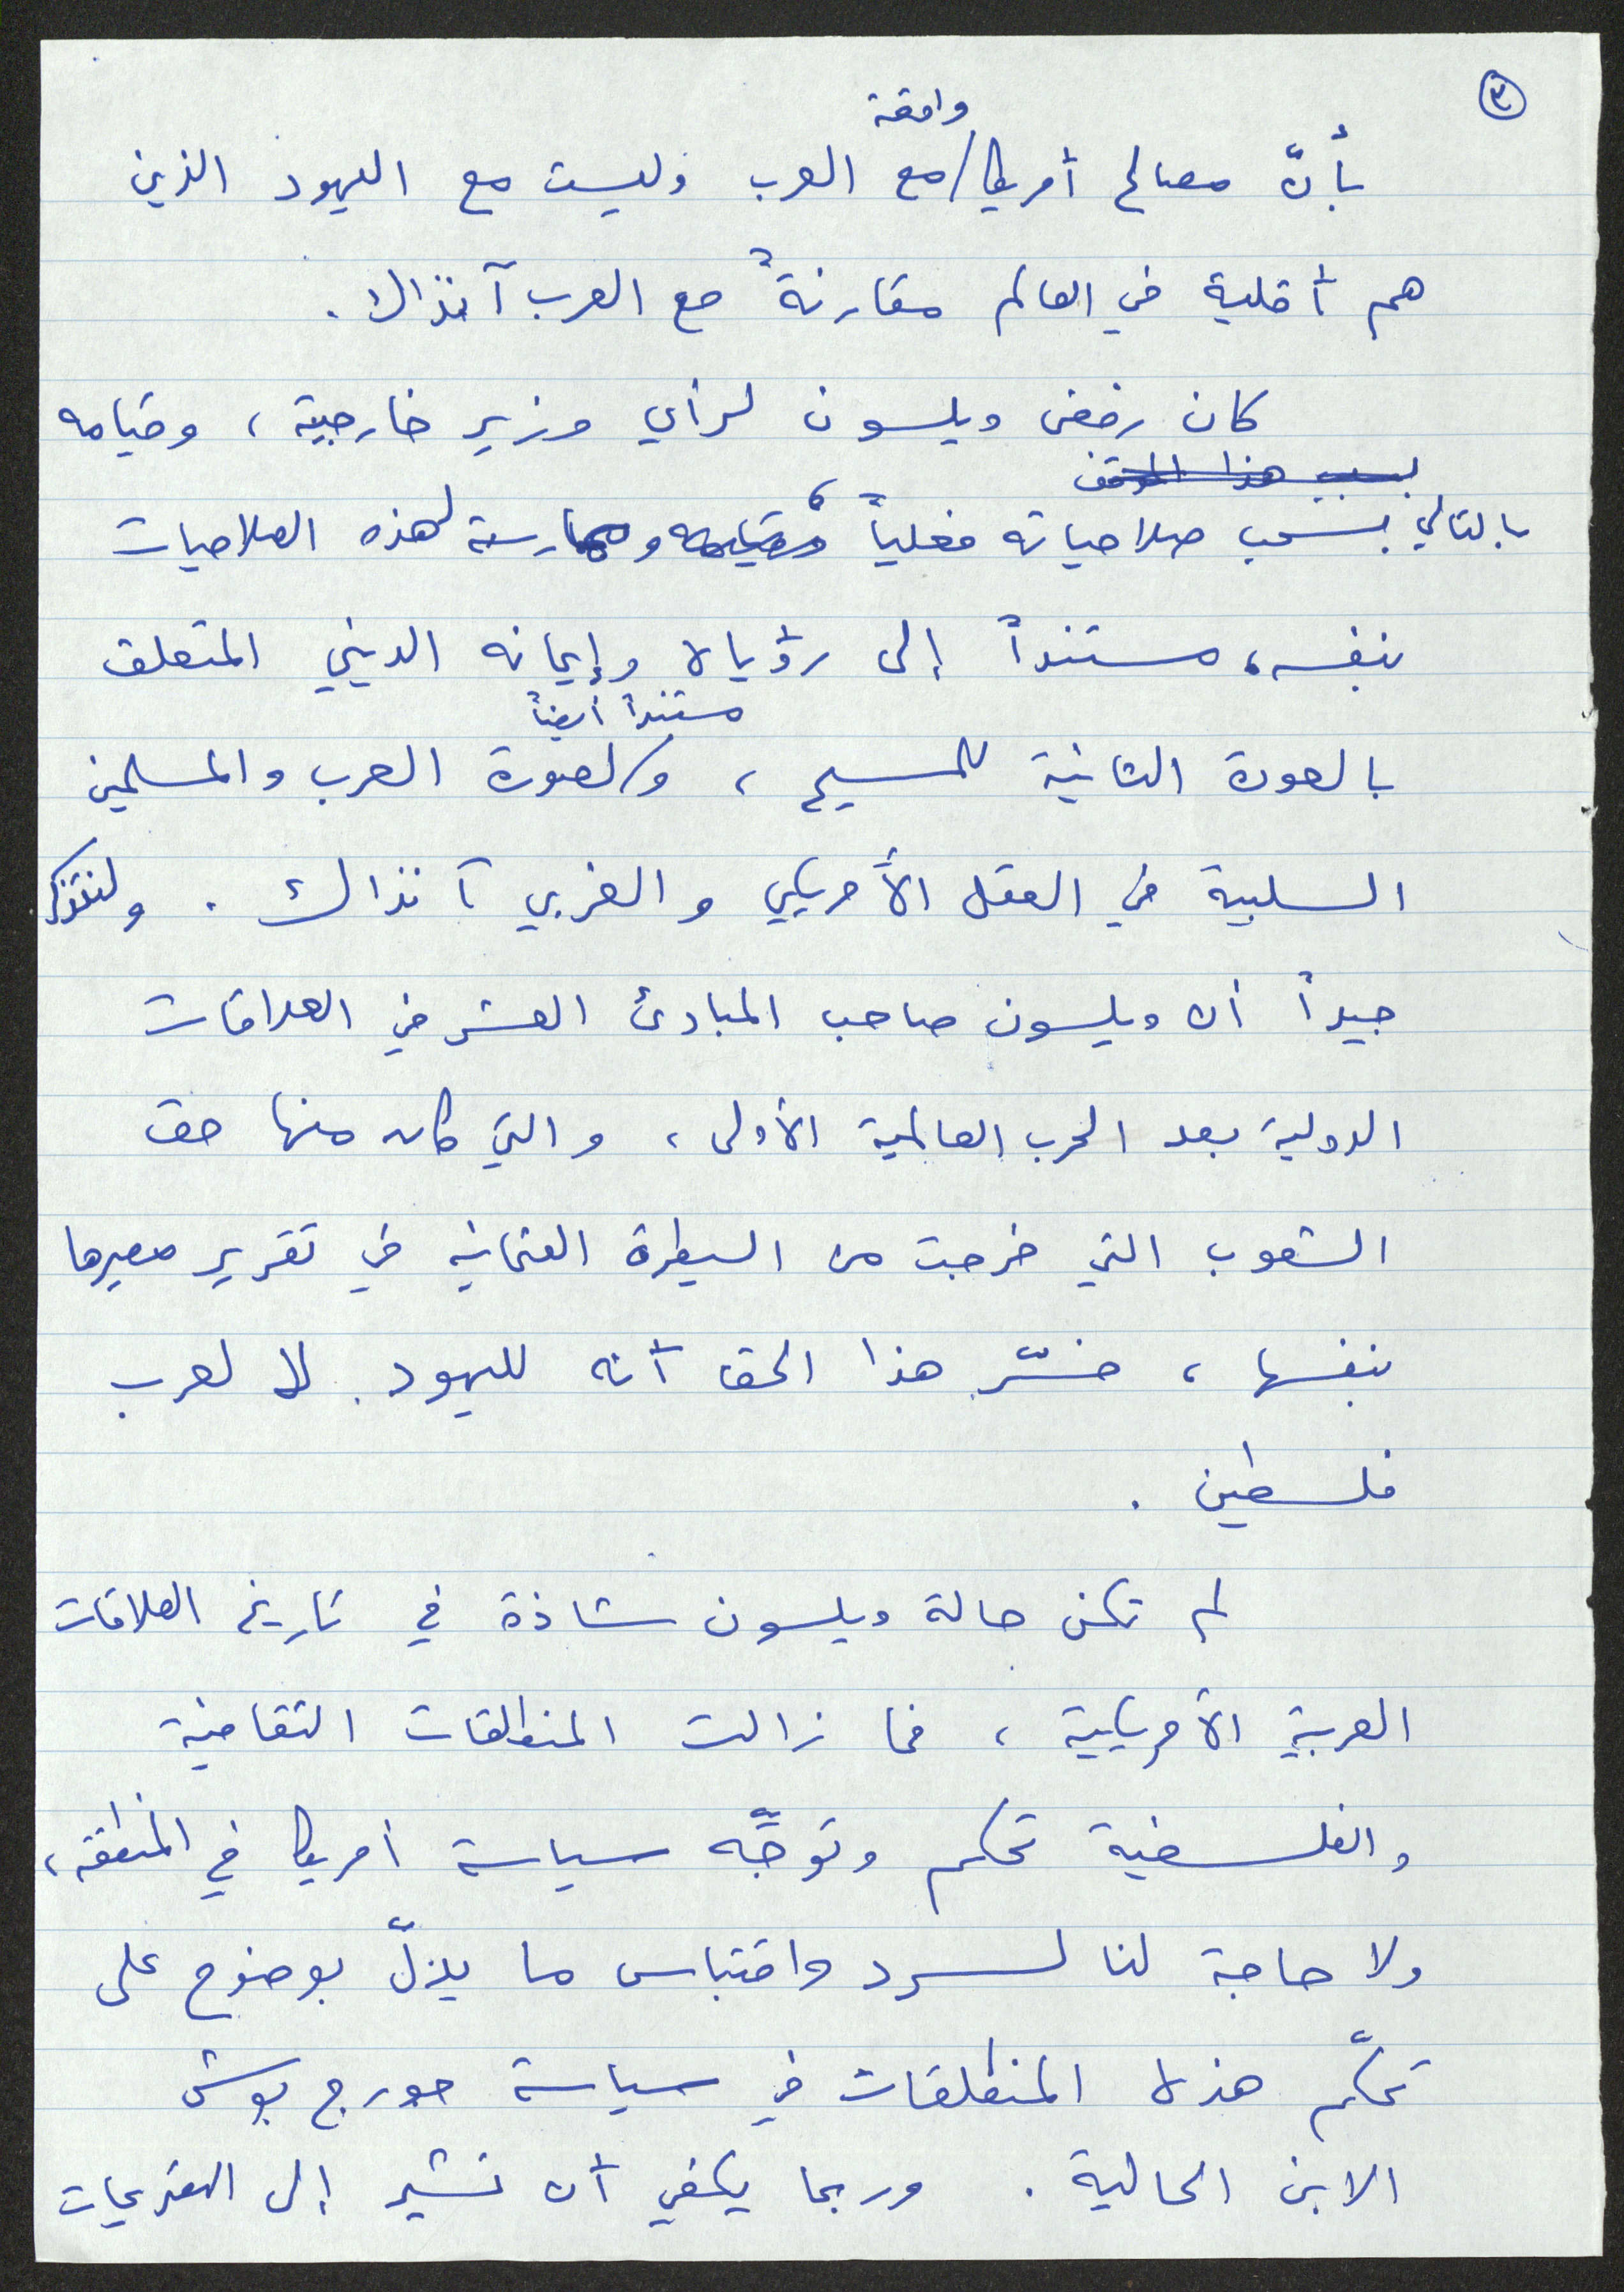 ٣
واقعة
بأنّ مصالح أمريكا/مع العرب وليست مع اليهود الذين
هم أقلية في العالم مقارنةً مع العرب آنذاك.
كان رفض ويلسون لرأي وزير خارجيته، وقيامه
بسبب هذا الموقف
بالتالي بسحب صلاحياته فعلياً، وممارسة لهذه الصلاحيات
بنفسه، مستنداً إلى رؤياه وإيمانه الديني المتعلق
مستنداً أيضاً
بالعودة الثانية للمسيح، و/لصورة العرب والمسلمين
السلبية في العقل الأمريكي والغربي آنذاك. ولنتذكر
جيداً أن ويلسون صاحب المبادئ العشر في العلاقات
الدولية بعد الحرب العالمية الأولى، والتي كان منها حق
الشعوب التي خرجت من السيطرة العثمانية في تقرير مصيرها
بنفسها، فسّر هذا الحق أنه لليهود لا لعرب
فلسطين.
لم تكن حالة ويلسون شاذة في تاريخ العلاقات
العربية الأمريكية، فما زالت المنطلقات الثقافية
والفلسفية تحكم وتوجّه سياسة أمريكا في المنطقة،
ولا حاجة لنا لسرد واقتباس ما يدلّ بوضوح على
تحكّم هذه المنطلقات في سياسة جورج بوش
الابن الحالية. وربما يكفي أن نشير إلى التصريحات